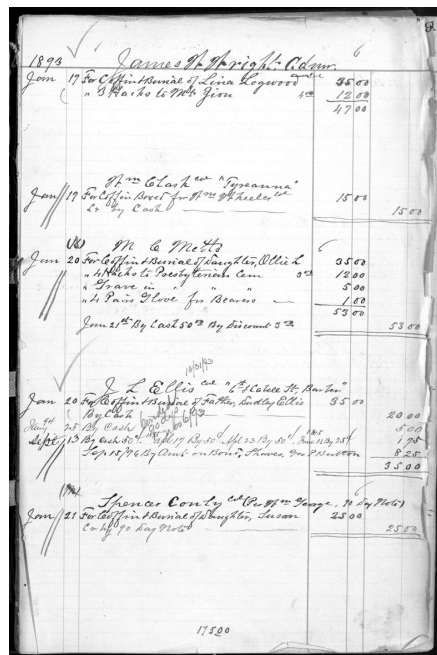 1893 James W. Wright Admr.
Jan 17 For Coffin & Burial of Lina Logwood 35 00
" 3 Hacks to Mt Zion 4 00 12 00
47 00
Wm Clark col "Tyreanna"
Jan 19 For Coffin Boxed for Wm Wheeler col 15 00
Cr By Cash 15 00
M C Metts
Jan 20 For Coffin & Burial of Daughter, Ollie L 35 00
" 4 Hacks to Presbyterian Cem 3 00 12 00
" Grave in " " " 5 00
" 4 Pairs Glove for Bearers 1 00
53 00
Jan 21st By Cash 50 00 By Discount 3 00 53 00
10/31/93
J L Ellis col "6th & Cabell St, Barton"
Jan 20 For Coffin & Burial of Father, Dudley Ellis 35 00
By Cash 20 00
94 25 By Cash 5 00
Sept 13 By Cash 50¢, Sept 17 By 50¢, 23 By 50¢, By 25¢ 1 75
Sep 15/96 By Amt on Bond, 8 25
35 00
Spencer Conly col (Per Wm George, 90 Day Note)
Jan 21 For Coffin & Burial of Daughter, Susan 25 00
Cr by 90 Day Note 25 00
175 00